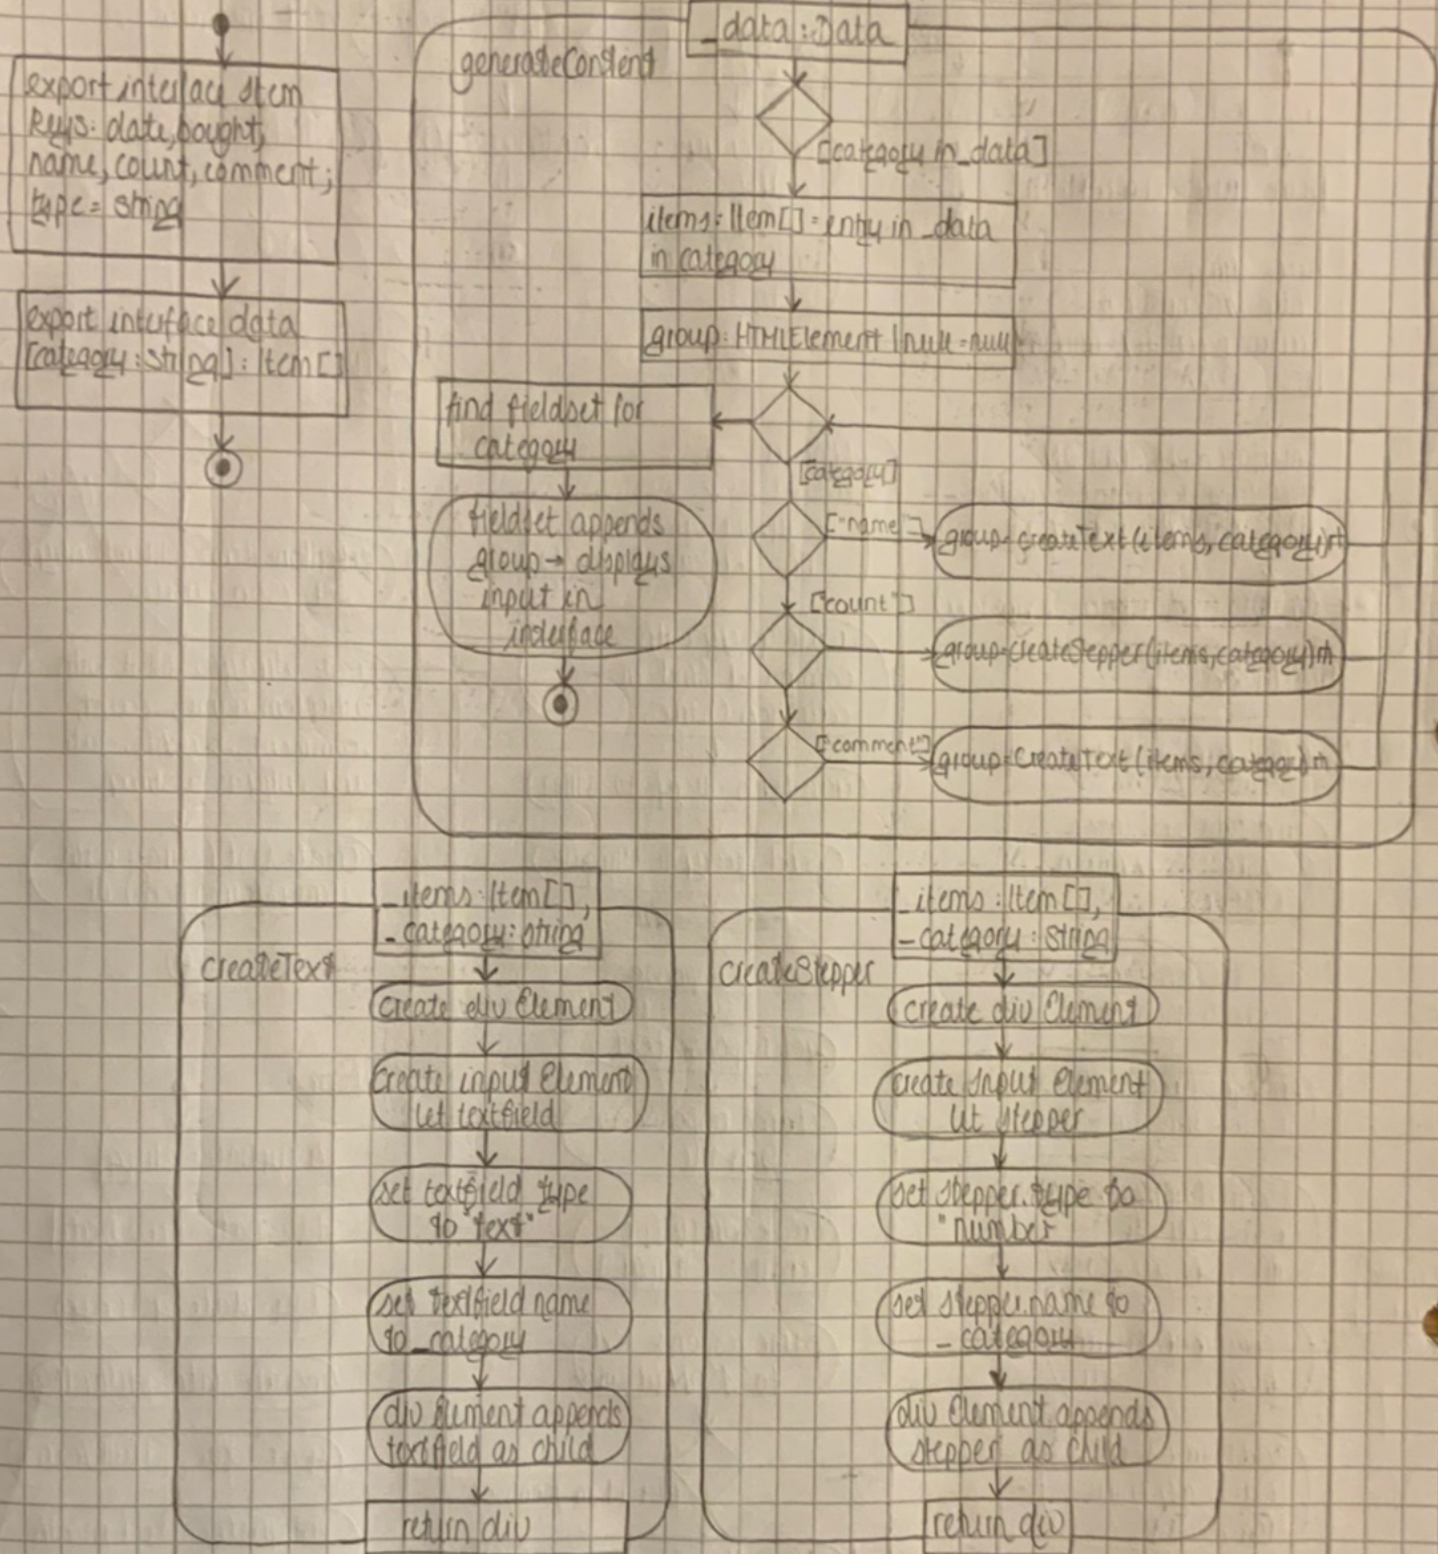 export interface Item
Keys: date, bought,
name, count, comment;
type = string
export interface data
[category : string] : Item []
generateContent
_data : Data
[category in _data]
items : Item[] = entry in _data
in category
group : HTMLElement | null = null
find fieldset for
category
[category]
fieldset appends
group → displays
input in
interface
["name"]
group = createText (items, category) ⋔
["count"]
group = createStepper (items, category) ⋔
["comment"]
group = CreateText (items, category) ⋔
createText
_items : Item[],
_category : string
create div Element
create input Element
let textfield
set textfield type
to "text"
set textfield name
to _category
div Element appends
textfield as child
return div
createStepper
_items : Item[],
_category : string
create div Element
create Input Element
let stepper
set stepper.type to
"number"
set stepper.name to
_category
div Element appends
stepper as child
return div